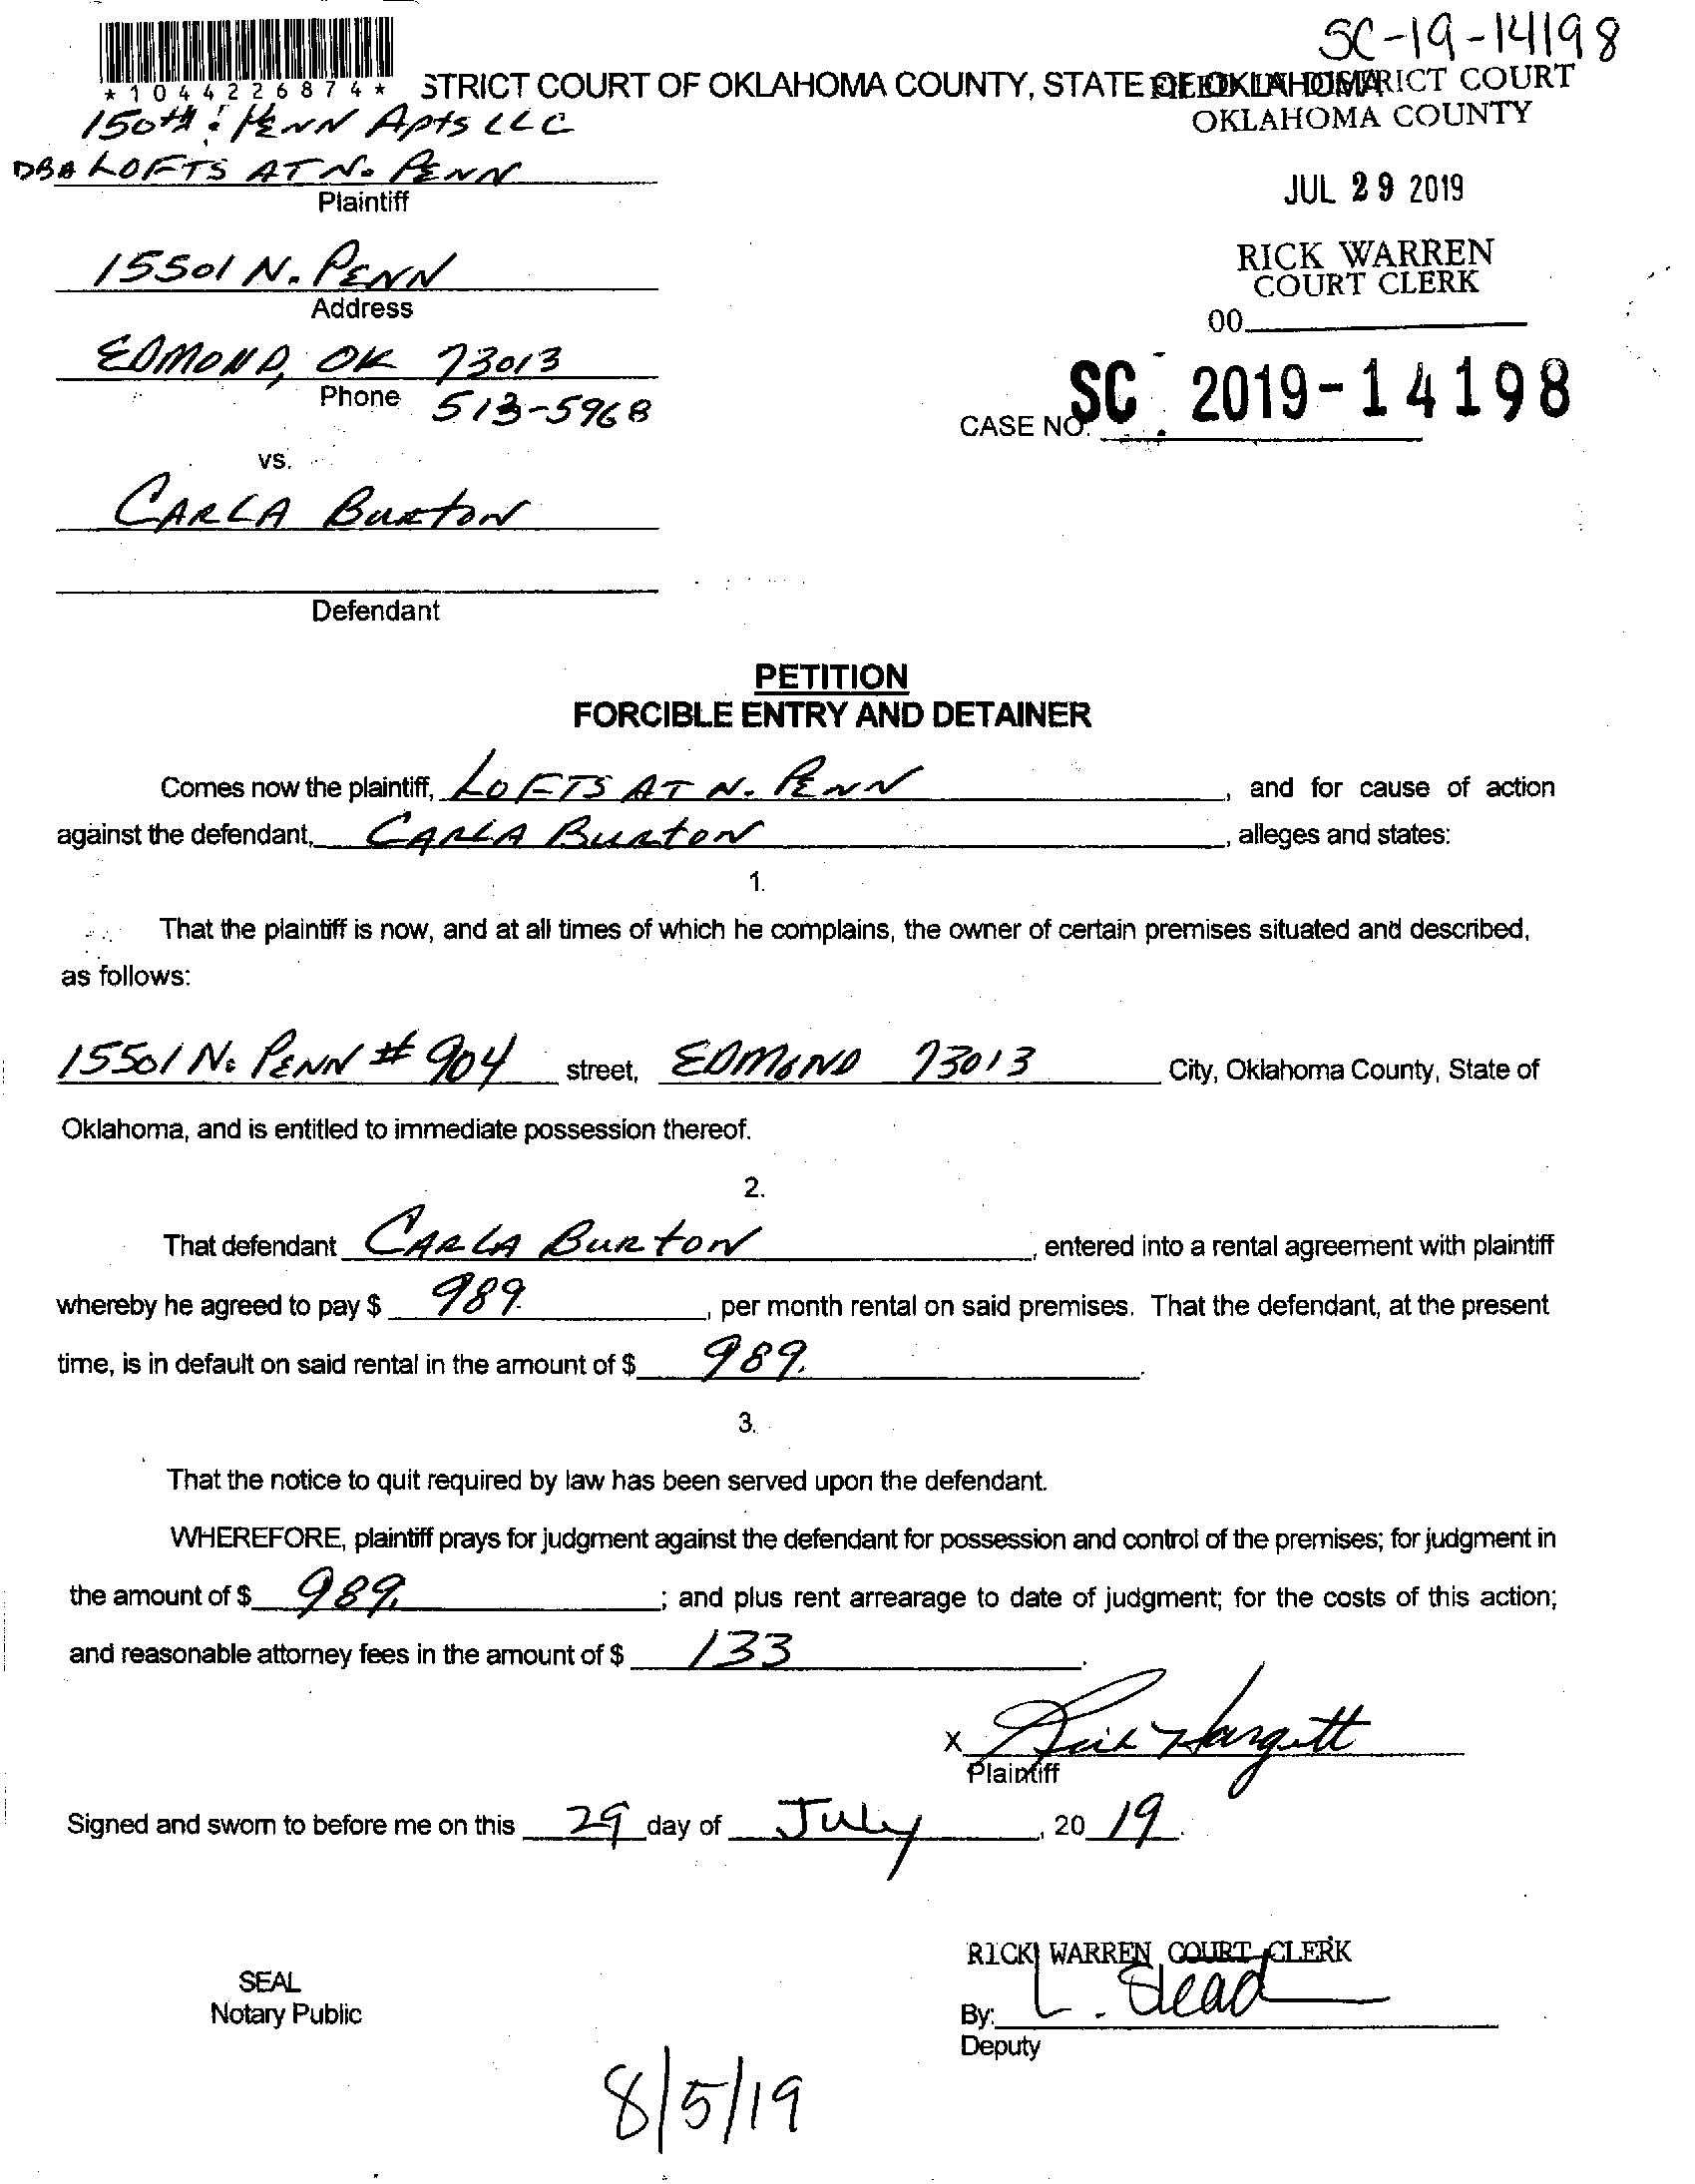 SC-19-14198
*1044226874*
STRICT COURT OF OKLAHOMA COUNTY, STATE OF OKLAHOMA
FILED IN DISTRICT COURT
OKLAHOMA COUNTY
150th & PENN Apts LLC
DBA LOFTS AT N. PENN
Plaintiff
JUL 29 2019
15501 N. PENN
Address
RICK WARREN
COURT CLERK
00
EDMOND, OK 73013
Phone 513-5968
CASE NO. SC 2019-14198
vs.
CARLA BURTON
Defendant
PETITION
FORCIBLE ENTRY AND DETAINER
Comes now the plaintiff, LOFTS AT N. PENN, and for cause of action
against the defendant, CARLA BURTON, alleges and states:
1.
That the plaintiff is now, and at all times of which he complains, the owner of certain premises situated and described,
as follows:
15501 N. PENN # 904 street, EDMOND 73013 City, Oklahoma County, State of
Oklahoma, and is entitled to immediate possession thereof.
2.
That defendant CARLA BURTON, entered into a rental agreement with plaintiff
whereby he agreed to pay $ 989., per month rental on said premises. That the defendant, at the present
time, is in default on said rental in the amount of $ 989.
3.
That the notice to quit required by law has been served upon the defendant.
WHEREFORE, plaintiff prays for judgment against the defendant for possession and control of the premises; for judgment in
the amount of $ 989.; and plus rent arrearage to date of judgment; for the costs of this action;
and reasonable attorney fees in the amount of $ 133.
X Hargett
Plaintiff
Signed and sworn to before me on this 29 day of July, 20 19.
RICK WARREN COURT CLERK
SEAL
Notary Public
By: L. Stead
Deputy
8/5/19